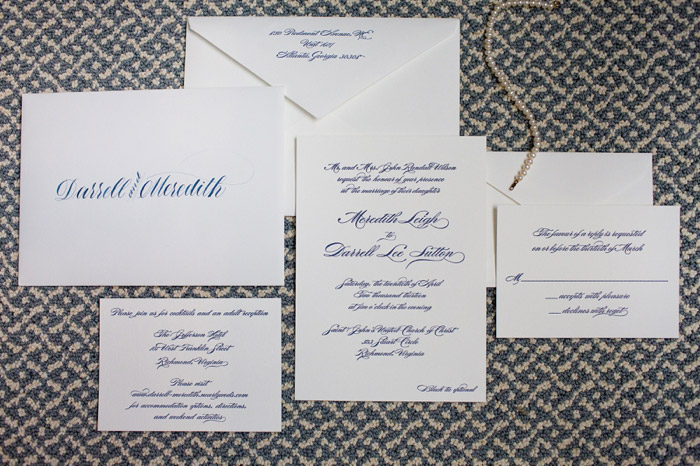 Atlanta, Georgia 30305
Darrell and Meredith
Mr. and Mrs. John Randall Wilson
request the honour of your presence
at the marriage of their daughter
Meredith Leigh
to
Darrell Lee Sutton
Saturday, the twentieth of April
Two thousand thirteen
at o'clock in the evening
Saint John's United Church of Christ
Stuart Circle
Richmond, Virginia
Black tie optional
The favour of a reply is requested
on or before the thirtieth of March
M
accepts with pleasure
declines with regret
Please join us for cocktails and an adult reception
The Jefferson Hotel
West Franklin Street
Richmond, Virginia
Please visit
for accommodation options, directions,
and weekend activities